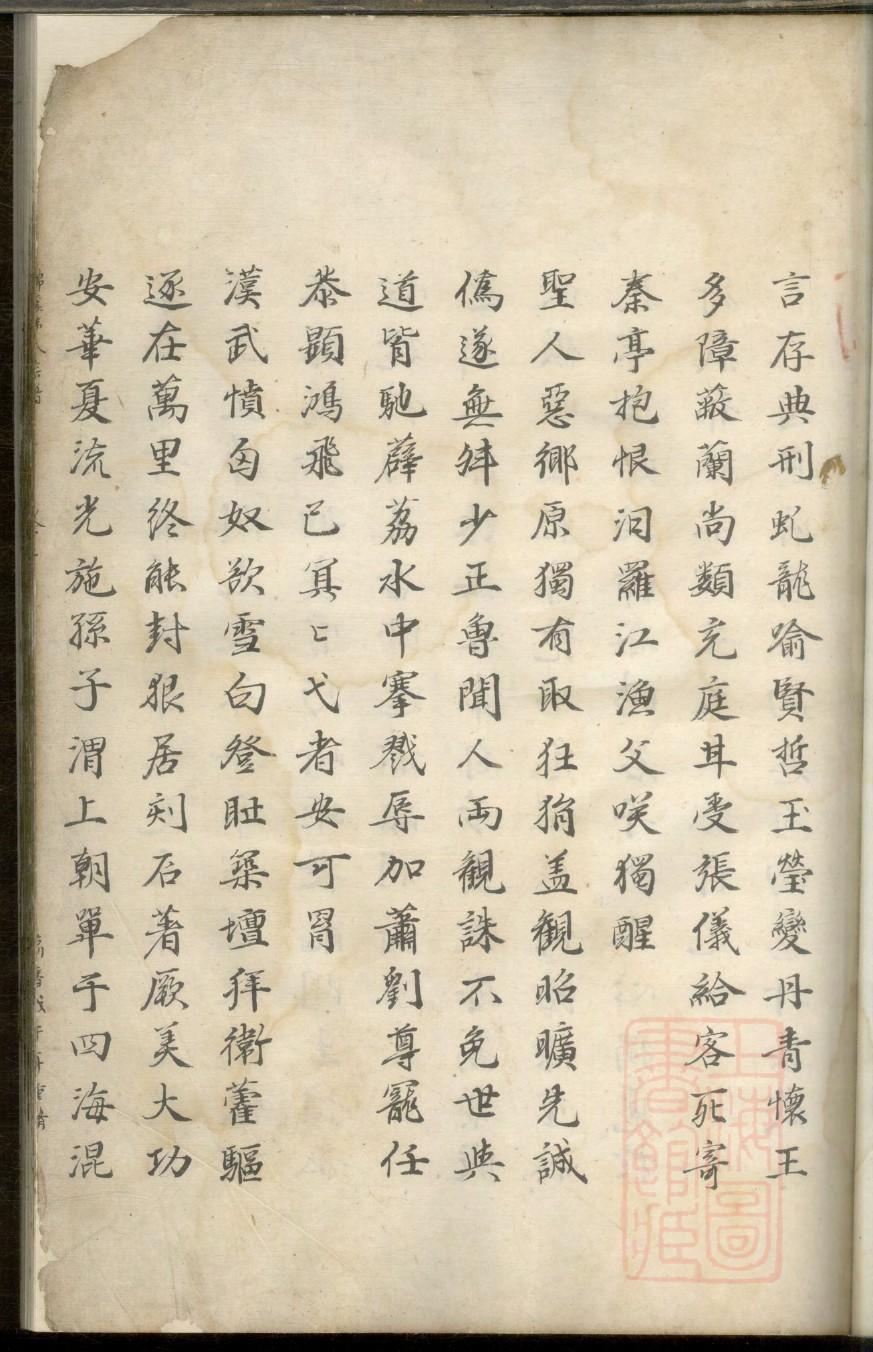 言存典刑虬龍喻賢哲玉瑩變丹青懷王
多障蔽蘭尚類充庭耳受張儀給客死寄
秦亭抱恨汨羅江漁父咲獨醒
聖人惡鄉原獨有取狂狷盖觀昭曠先誠
僞遂無舛少正魯聞人兩觀誅不免世與
道皆馳薜荔水中搴戮辱加蕭劉尊寵任
恭顯鴻飛已冥〻弋者安可罥
漢武憤匈奴欲雪白登恥築壇拜衛藿驅
逐在萬里終能封狼居刻石著厥美大功
安華夏流光施孫子渭上朝單于四海混
上海圖書館臧